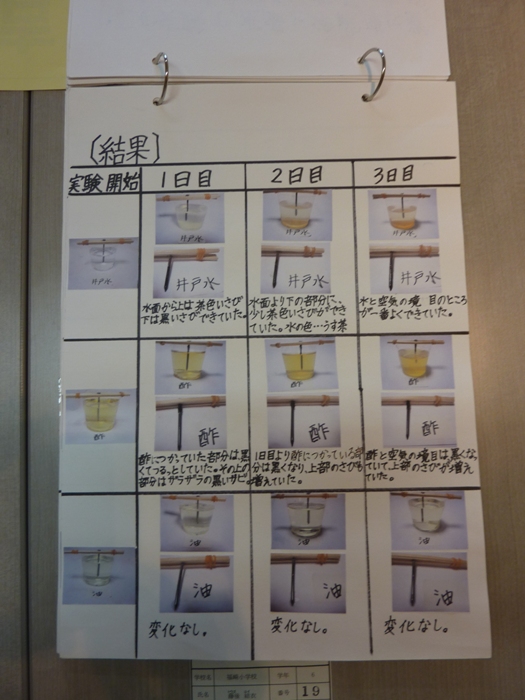 〔結果〕
実験開始
1日目
2日目
3日目
井戸水
井戸水
井戸水
井戸水
井戸水
井戸水
井戸水
水面から上は茶色いさび
下は黒いさびができていた。
水面より下の部分に、
少し茶色いさびができ
ていた。水の色…うす茶
水と空気の境目のところ
が一番よくできていた。
酢
酢
酢
酢
酢
酢
酢
酢につかっていた部分は黒
くてつるっとしていた。その上の
部分はザラザラの黒いサビ
1日目より酢につかっている部
分は黒くなり、上部のさびも
増えていた。
酢と空気の境目は、黒くなっ
ていて、上部のさびが増え
ていた。
油
油
油
油
油
油
油
変化なし。
変化なし。
変化なし。
学校名
学年
氏名
番号
19